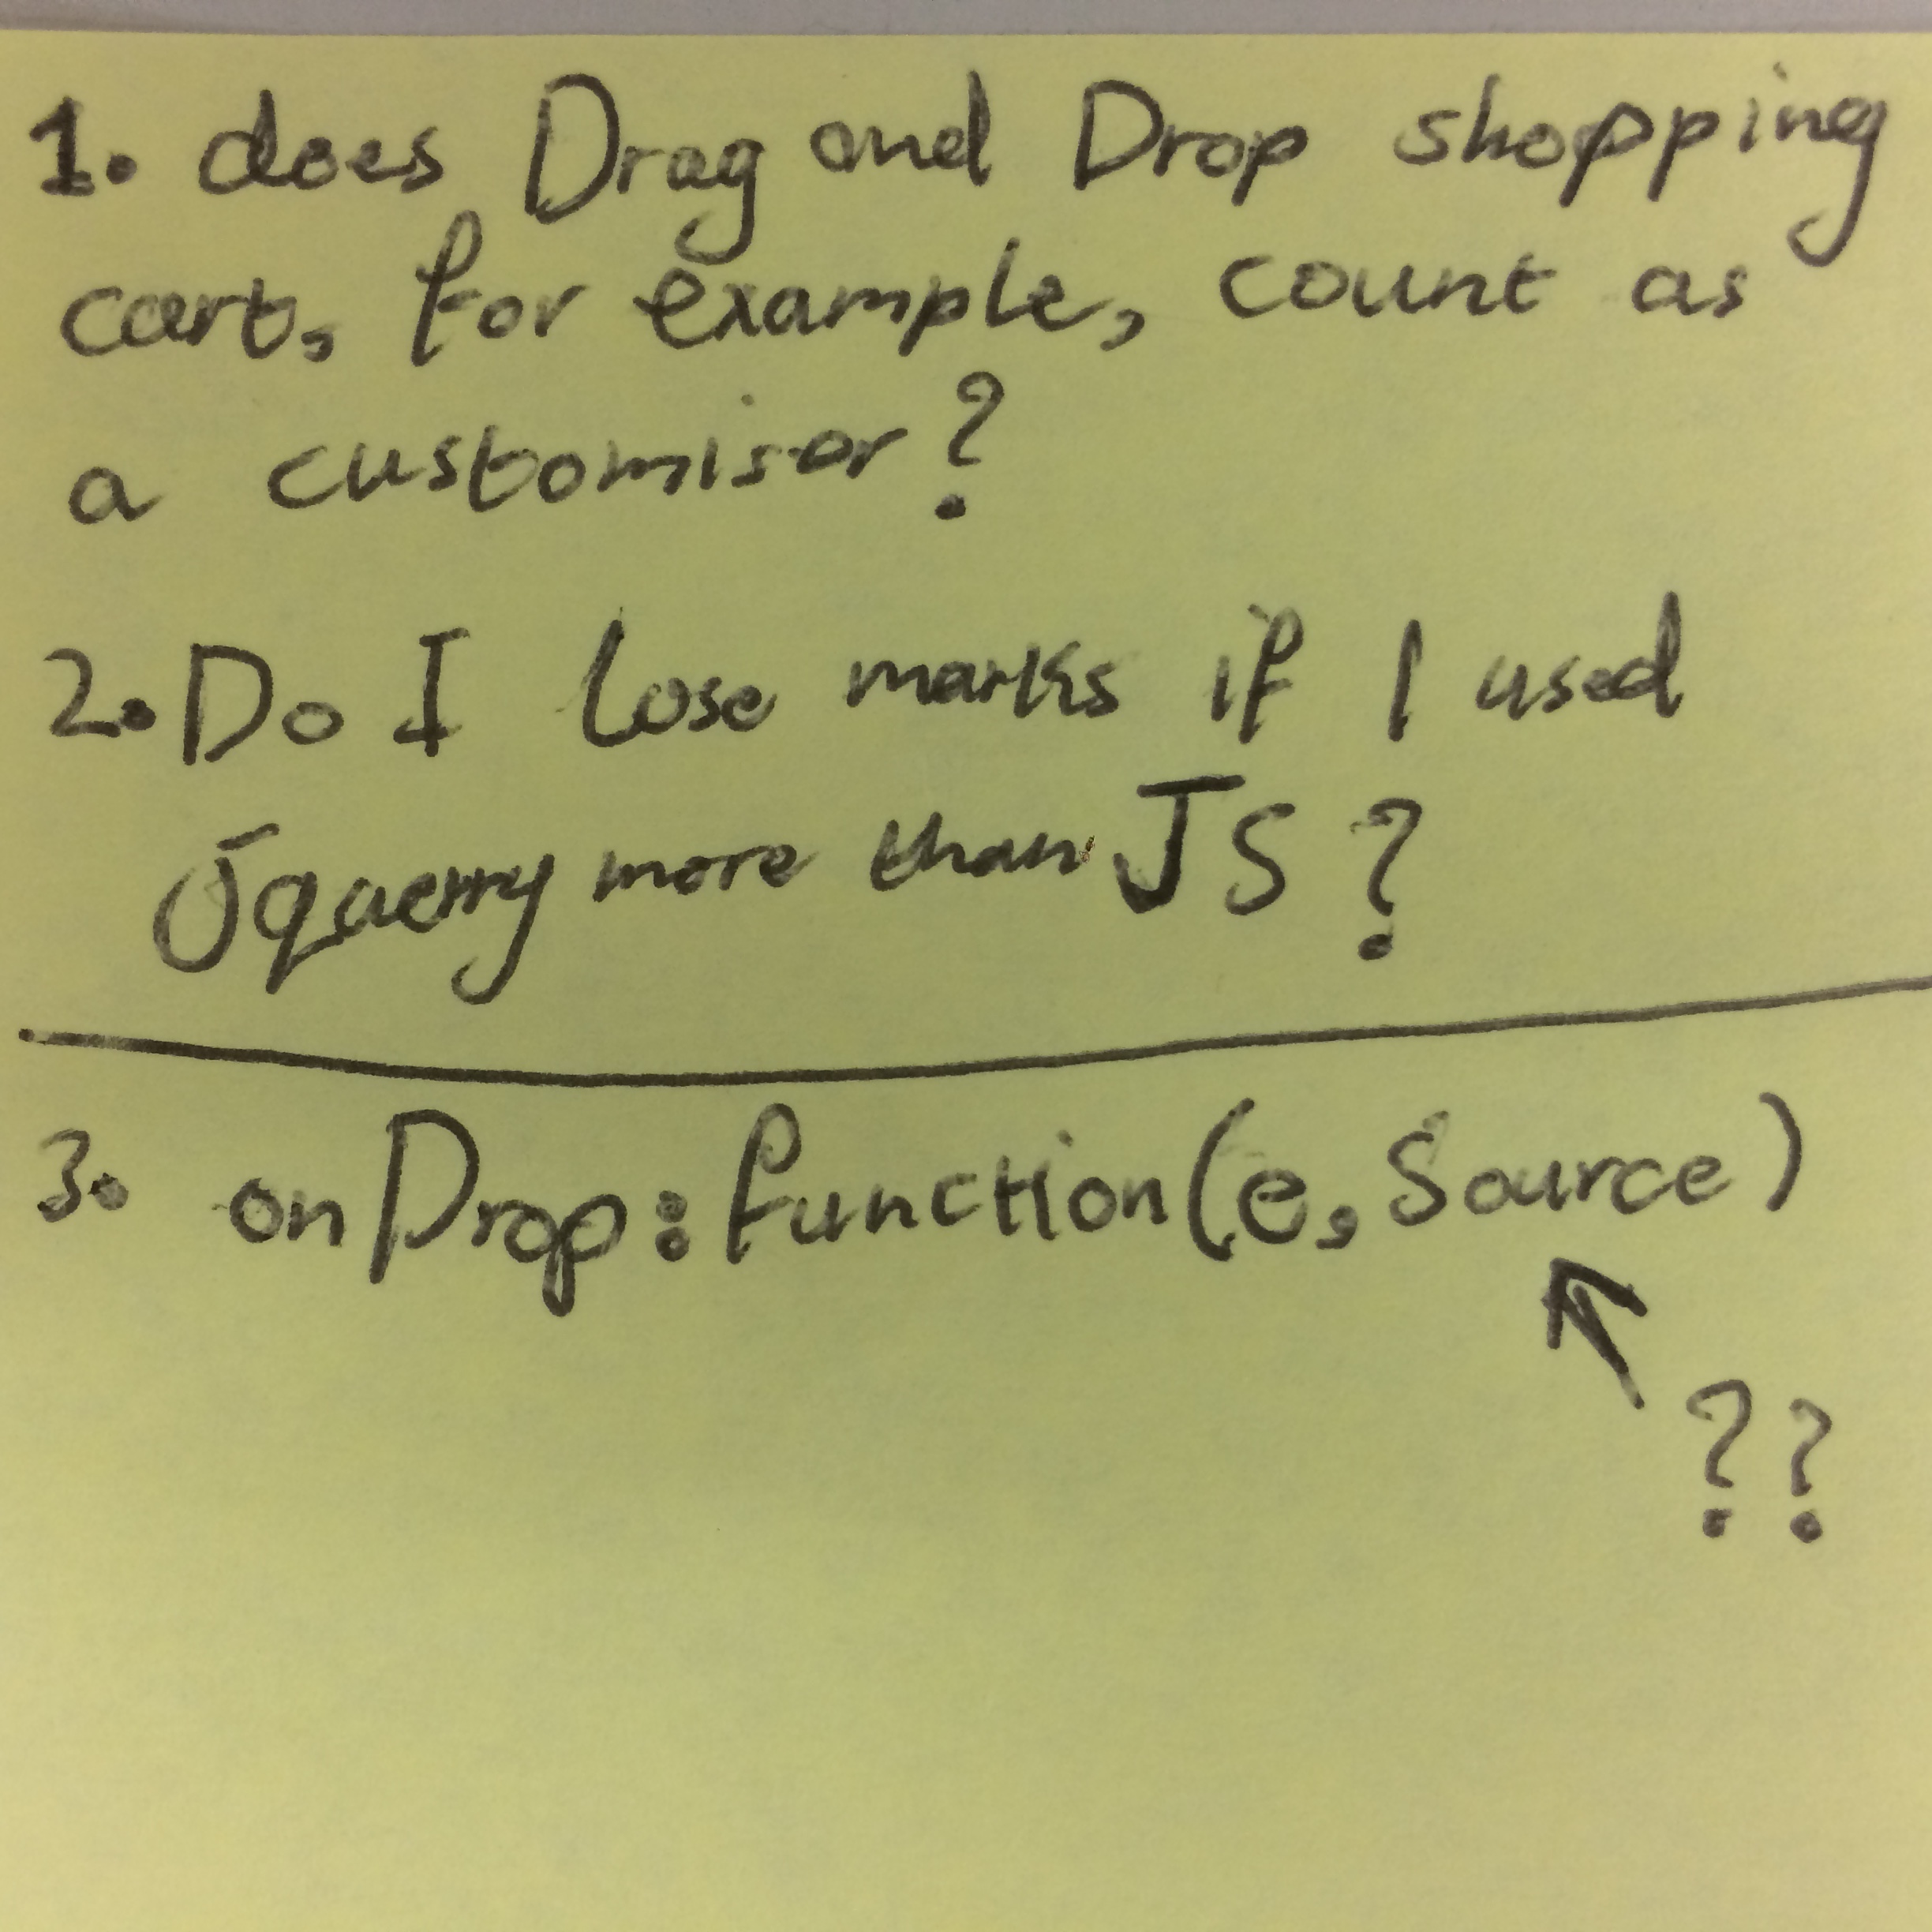 1. does Drag and Drop shopping
cart, for example, count as
a customisor?
2. Do I lose marks if I used
Jquerry more than JS?
3. onDrop: function(e, Source)
??